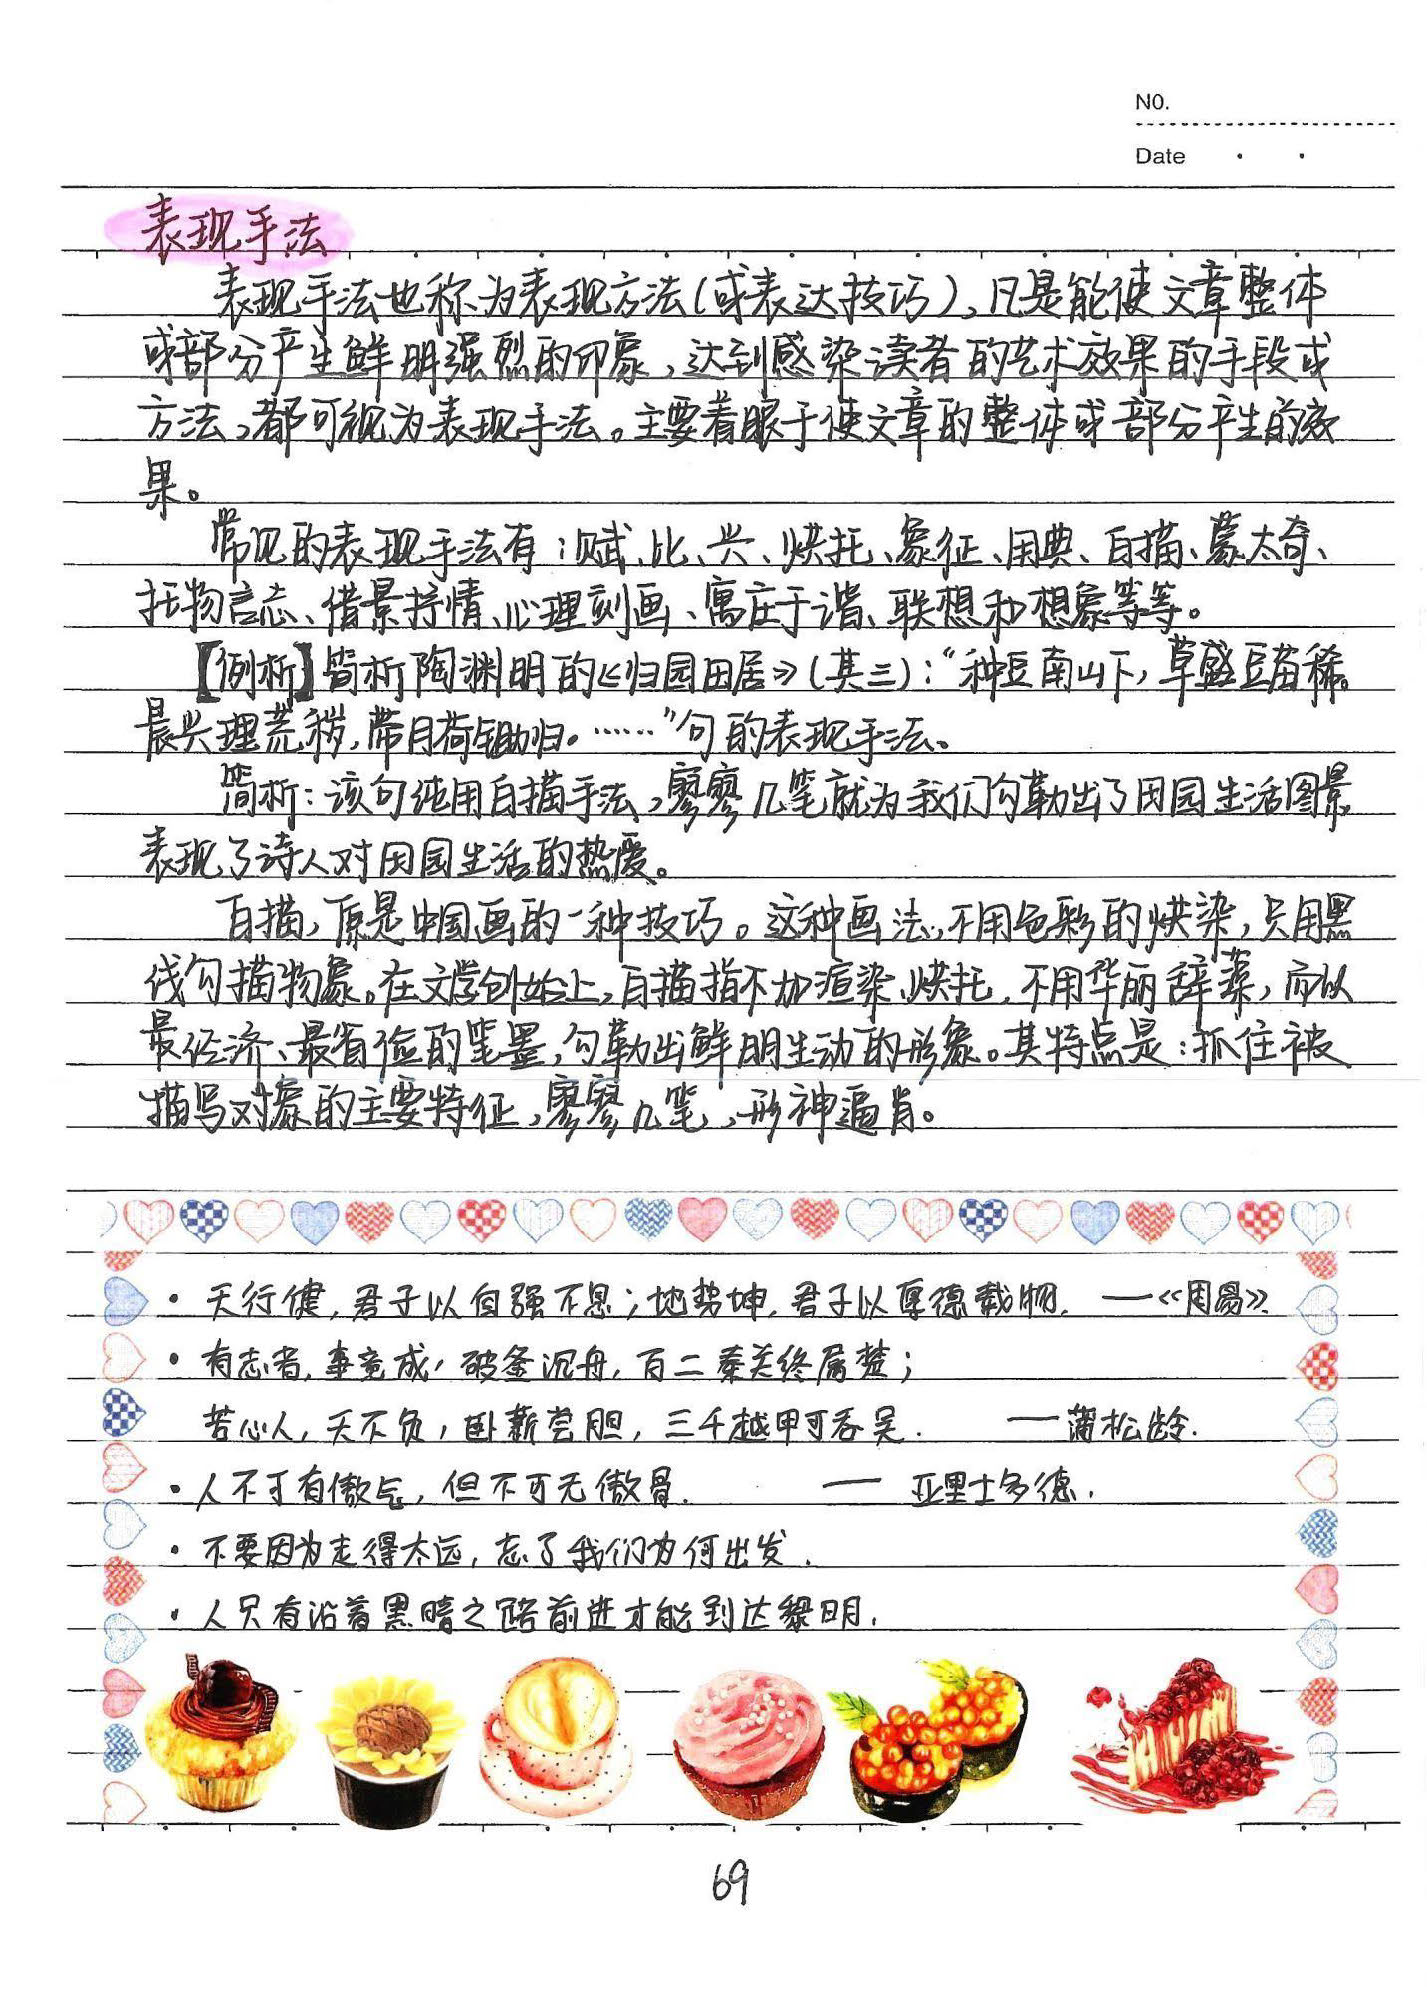 NO.
Date
表现手法
表现手法也称为表现方法(或表达技巧),凡是能使文章整体
或部分产生鲜明强烈的印象,达到感染读者的艺术效果的手段或
方法,都可视为表现手法。主要着眼于使文章的整体或部分产生的效
果。
常见的表现手法有:赋、比、兴、烘托、象征、用典、白描、蒙太奇、
托物言志、借景抒情、心理刻画、寓庄于谐、联想和想象等等。
【例析】简析陶渊明的《归园田居》(其三):“种豆南山下,草盛豆苗稀。
晨兴理荒秽,带月荷锄归。……”句的表现手法。
简析:该句纯用白描手法,寥寥几笔就为我们勾勒出了田园生活图景
表现了诗人对田园生活的热爱。
白描,原是中国画的一种技巧。这种画法,不用色彩的烘染,只用墨
线勾描物象。在文学创始上,白描指不加渲染、烘托,不用华丽辞藻,而以
最经济、最省俭的笔墨,勾勒出鲜明生动的形象。其特点是:抓住被
描写对象的主要特征,寥寥几笔,形神逼肖。
· 天行健,君子以自强不息;地势坤,君子以厚德载物. ——《周易》.
· 有志者,事竟成,破釜沉舟,百二秦关终属楚;
苦心人,天不负,卧薪尝胆,三千越甲可吞吴. ——蒲松龄.
· 人不可有傲气,但不可无傲骨. —— 亚里士多德.
· 不要因为走得太远,忘了我们为何出发.
· 人只有沿着黑暗之路前进才能到达黎明.
69